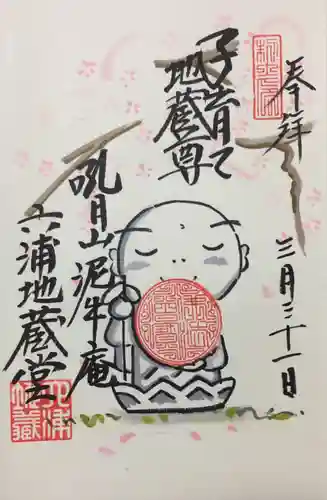 奉拝
三月三十一日
子育て
地蔵尊
吼月山泥牛庵
六浦地蔵堂
六浦
地蔵